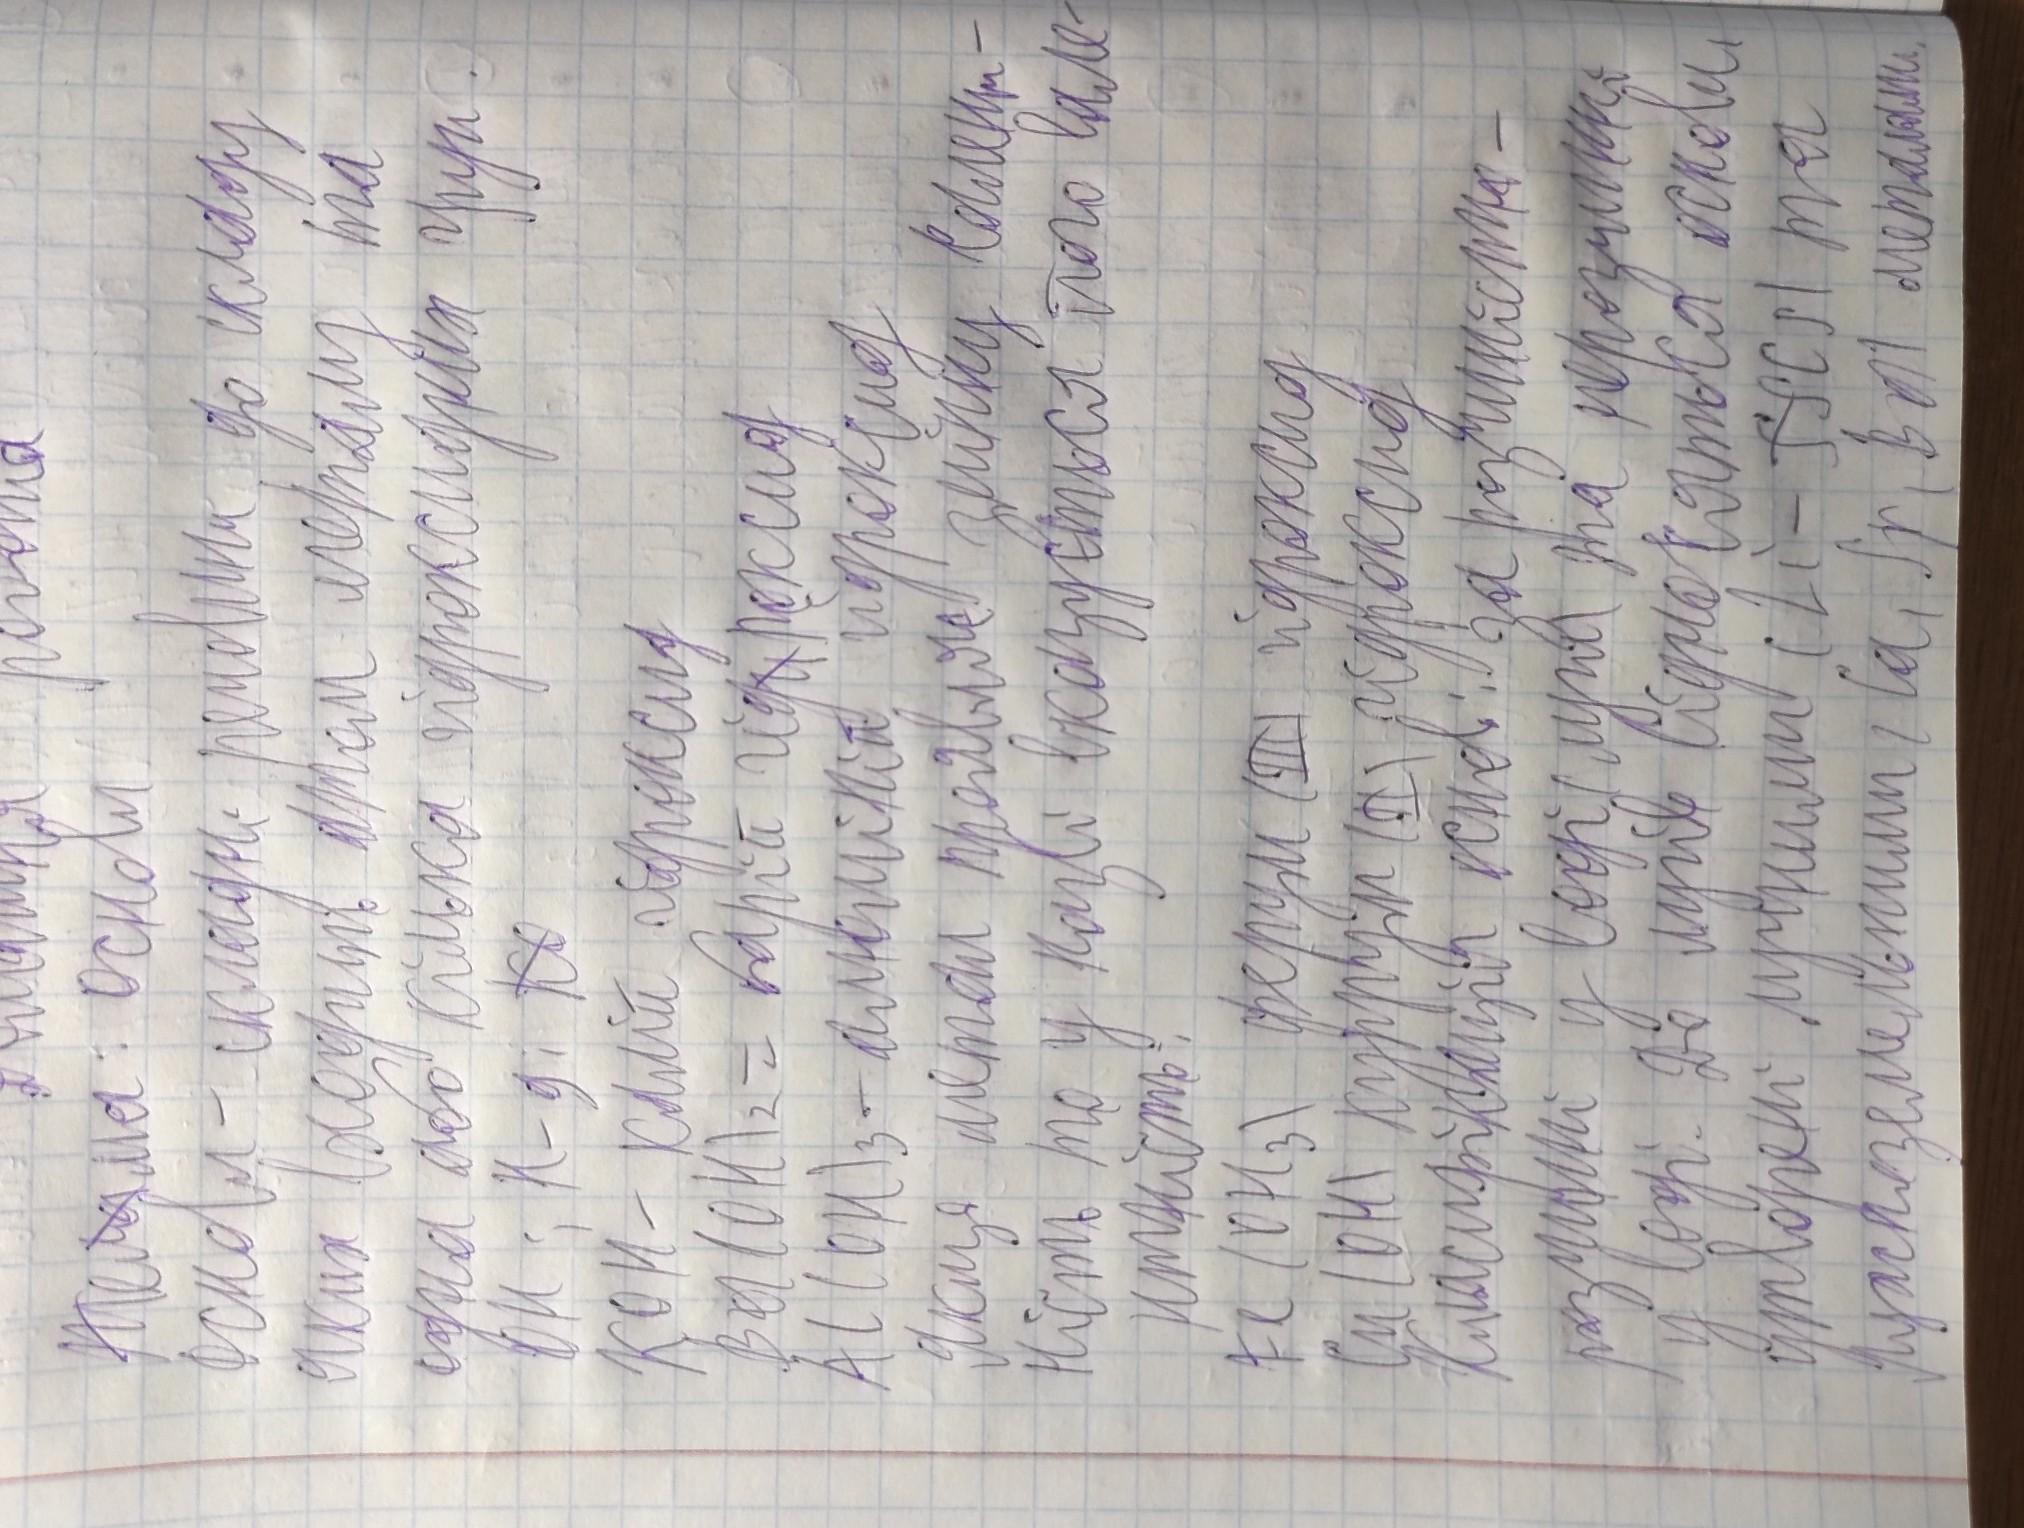 робота
Тема: основи
Основи - складні речовини до складу
яких входить атом металу та
одна або кілька гідроксидних груп.
ОН; Н-д:
KOH - калій гідроксид
Ba(OH)2 = барій гідроксид
Al(OH)3 - алюміній гідроксид
Якщо метал проявляє змінну валент-
ність то у назві вказується його вале-
нтність:
Fe(OH3) ферум (III) гідроксид
Cu(OH) купрум (II) гідроксид
Класифікація основ: за розчинністю -
розчинні у воді (луги) та нерозчинні
у воді. До лугів відносяться основи
утворені лучними (Li - Cs) та
лужноземельними Ca, Sr, Ba) металами.